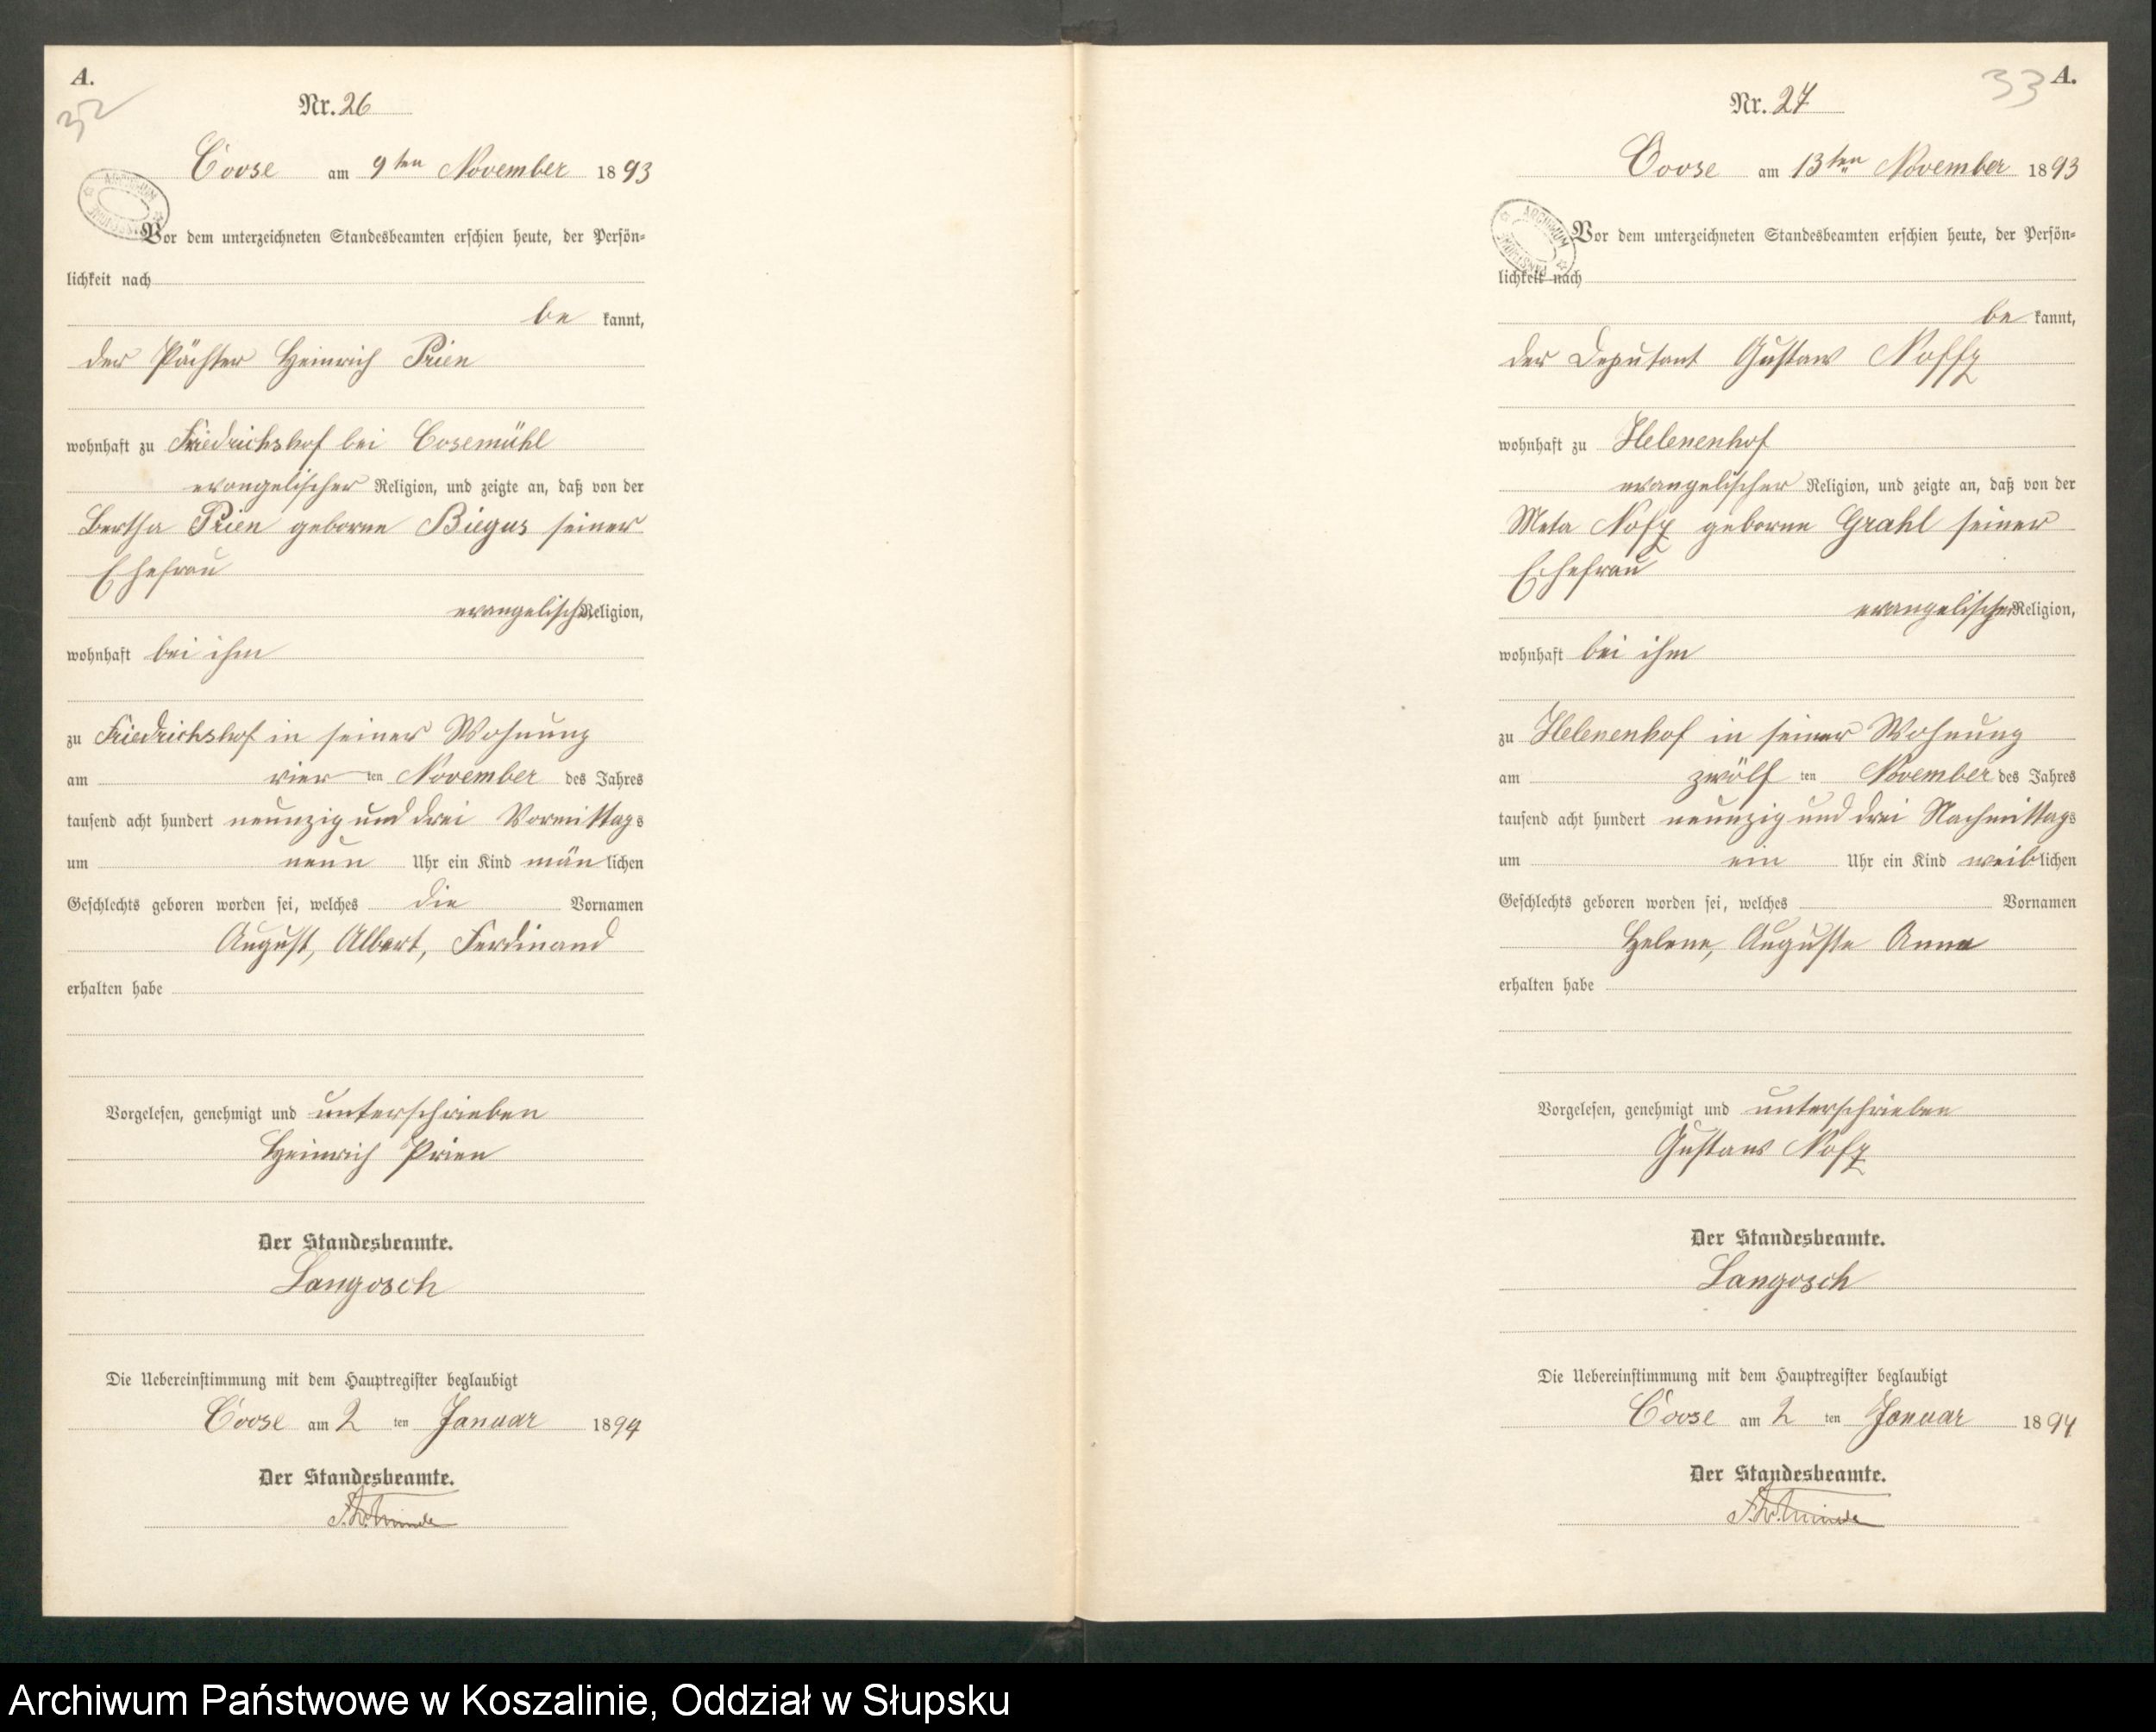 A.
32
Nr. 26
Coose am 9ten November 1893
Vor dem unterzeichneten Standesbeamten erschien heute, der Persön-
lichkeit nach
be kannt,
der Pächter Heinrich Prien
wohnhaft zu Friedrichshof bei Cosemühl
evangelischer Religion, und zeigte an, daß von der
Bertha Prien geborne Biegus seiner
Ehefrau
evangelischer Religion,
wohnhaft bei ihm
zu Friedrichshof in seiner Wohnung
am vier ten November des Jahres
tausend acht hundert neunzig und drei Vormittags
um neun Uhr ein Kind män lichen
Geschlechts geboren worden sei, welches die Vornamen
August, Albert, Ferdinand
erhalten habe
Vorgelesen, genehmigt und unterschrieben
Heinrich Prien
Der Standesbeamte.
Langosch
Die Uebereinstimmung mit dem Hauptregister beglaubigt
Coose am 2 ten Januar 1894
Der Standesbeamte.
33
A.
Nr. 27
Coose am 13ten November 1893
ARCHIWUM
Vor dem unterzeichneten Standesbeamten erschien heute, der Persön-
lichkeit nach
be kannt,
der Deputant Gustav Noffz
wohnhaft zu Helenenhof
evangelischer Religion, und zeigte an, daß von der
Meta Nofz geborne Grahl seiner
Ehefrau
evangelischer Religion,
wohnhaft bei ihm
zu Helenenhof in seiner Wohnung
am zwölf ten November des Jahres
tausend acht hundert neunzig und drei Nachmittags
um ein Uhr ein Kind weiblichen
Geschlechts geboren worden sei, welches Vornamen
Helene, Auguste Anna
erhalten habe
Vorgelesen, genehmigt und unterschrieben
Gustav Nofz
Der Standesbeamte.
Langosch
Die Uebereinstimmung mit dem Hauptregister beglaubigt
Coose am 2 ten Januar 1894
Der Standesbeamte.
Archiwum Państwowe w Koszalinie, Oddział w Słupsku